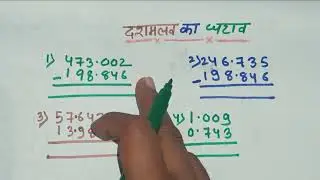 दशमलव का घटाव
1) 473.002
- 198.846
2) 246.735
- 198.846
3) 57.64
13.98
1.009
0.743